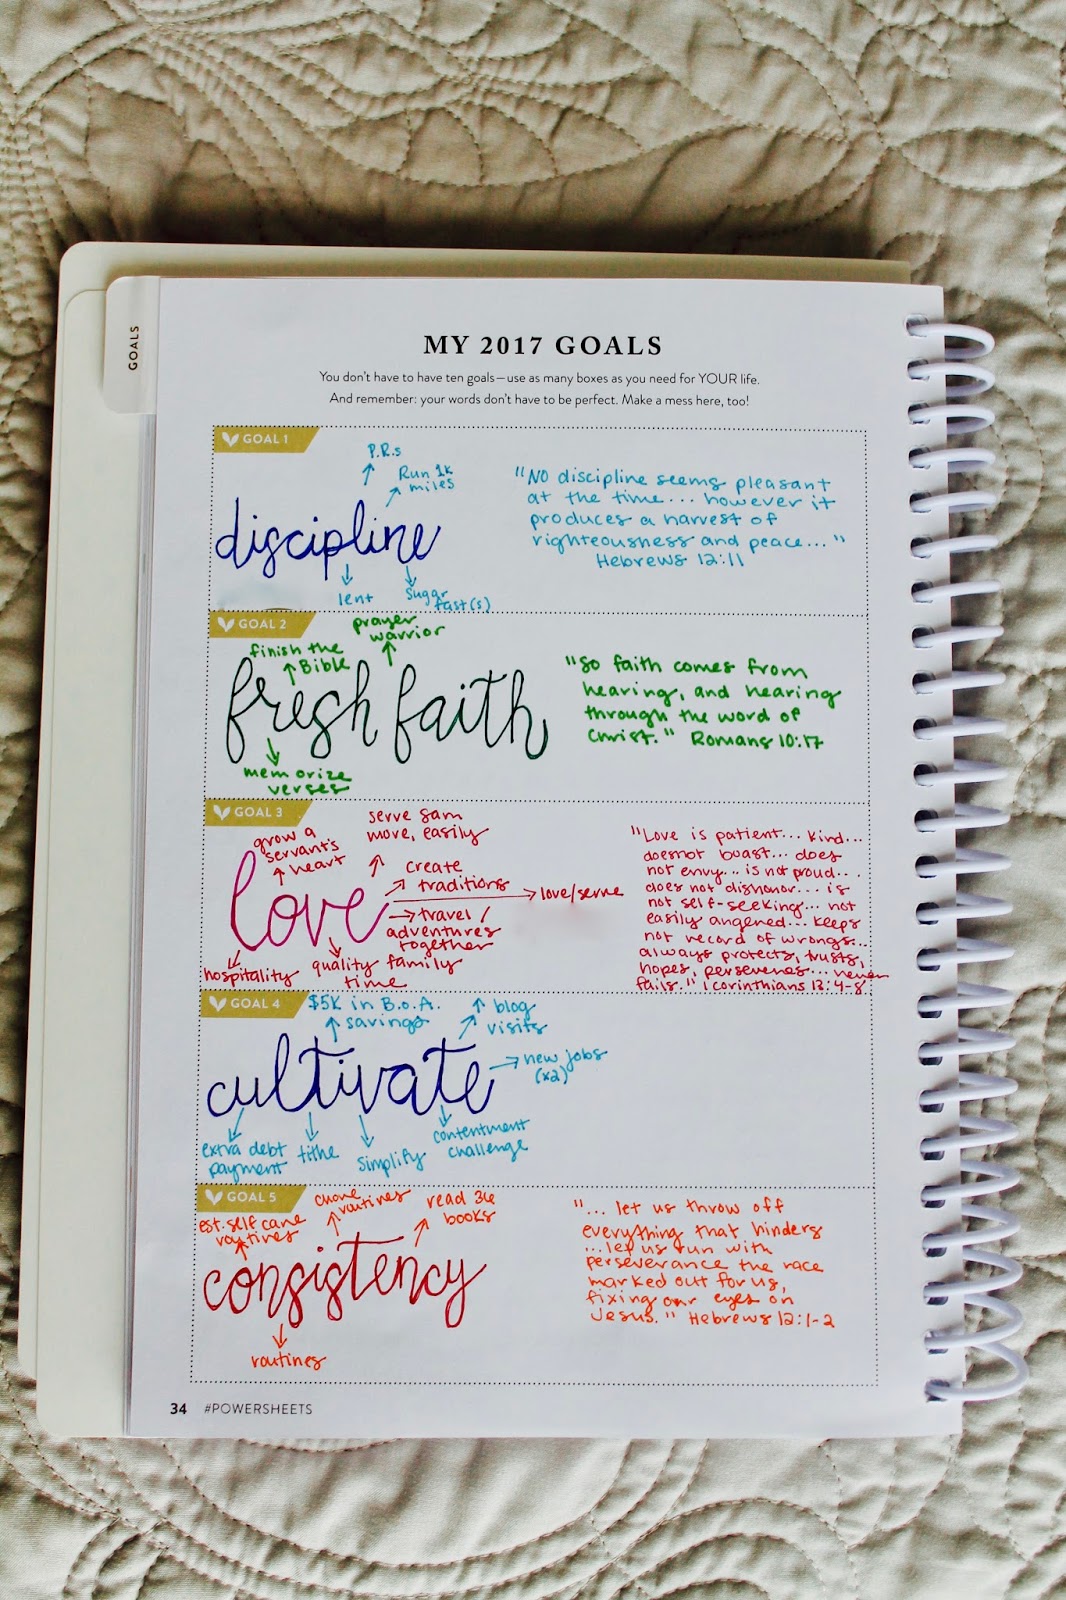 GOALS
MY 2017 GOALS
You don't have to have ten goals—use as many boxes as you need for YOUR life.
And remember: your words don't have to be perfect. Make a mess here, too!
GOAL 1
P.R.s
Run 1k
miles
discipline
lent
sugar
fast(s)
"No discipline seems pleasant
at the time... however it
produces a harvest of
righteousness and peace..."
Hebrews 12:11
GOAL 2
prayer
warrior
finish the
Bible
fresh faith
memorize
verses
"So faith comes from
hearing, and hearing
through the word of
Christ." Romans 10:17
GOAL 3
grow a
servant's
heart
serve sam
more, easily
create
traditions
love/serve
love
travel/
adventures
together
hospitality
quality family
time
"Love is patient... kind...
does not boast... does
not envy... is not proud...
does not dishonor... is
not self-seeking... not
easily angered... keeps
not record of wrongs...
always protects, trusts,
hopes, perseveres... never
fails." 1 Corinthians 13:4-8
GOAL 4
$5K in B.o.A.
savings
blog
visits
new jobs
(x2)
cultivate
extra debt
payment
tithe
simplify
contentment
challenge
GOAL 5
est. self care
routines
chore
routines
read 36
books
consistency
routines
"... let us throw off
everything that hinders
...let us run with
perseverance the race
marked out for us,
fixing our eyes on
Jesus." Hebrews 12:1-2
34 #POWERSHEETS